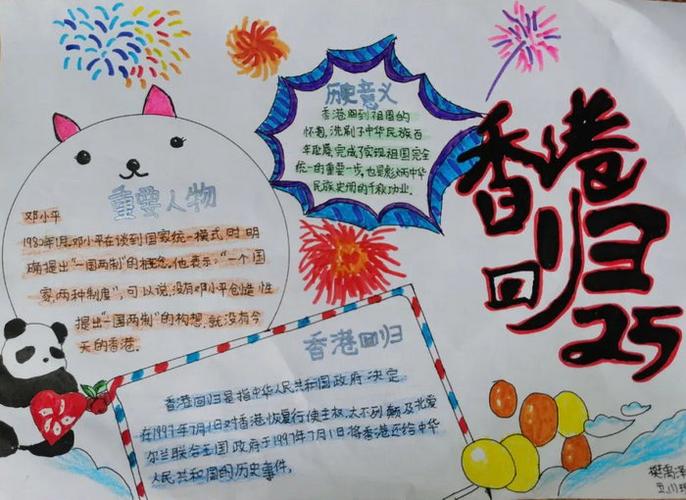 历史意义
香港回到祖国的
怀抱,洗刷了中华民族百
年耻辱,完成了实现祖国完全
统一的重要一步,也是彪炳中华
民族史册的千秋功业.
香港
回归
25
重要人物
邓小平
1982年1月,邓小平在谈到国家统一模式时明
确提出“一国两制”的概念.他表示:“一个国
家,两种制度”,可以说,没有邓小平创造性
提出“一国两制”的构想,就没有今
天的香港.
香港回归
香港回归是指中华人民共和国政府决定
在1997年7月1日对香港恢复行使主权,大不列颠及北爱
尔兰联合王国政府于1997年7月1日将香港还给中华
人民共和国的历史事件.
樊禹泽